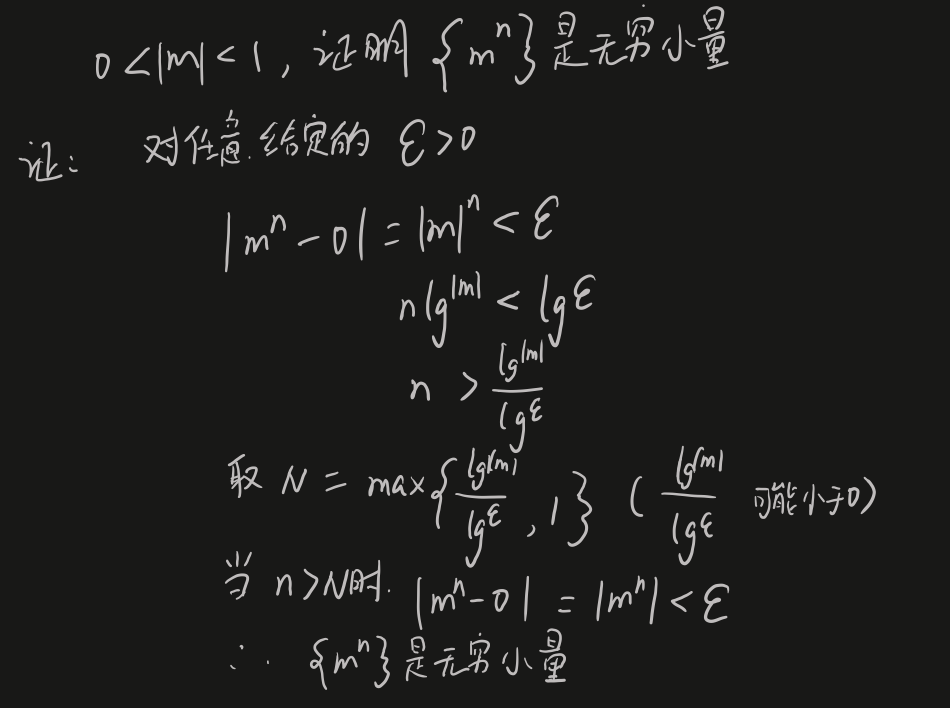 0 < |m| < 1, 证明 {mⁿ} 是无穷小量
证: 对任意给定的 ε > 0
|mⁿ - 0| = |m|ⁿ < ε
n lg|m| < lg ε
n > lg|m| / lg ε
取 N = max{ lg|m| / lg ε , 1 } ( lg|m| / lg ε 可能小于0)
当 n > N时. |mⁿ - 0| = |mⁿ| < ε
∴ {mⁿ} 是无穷小量